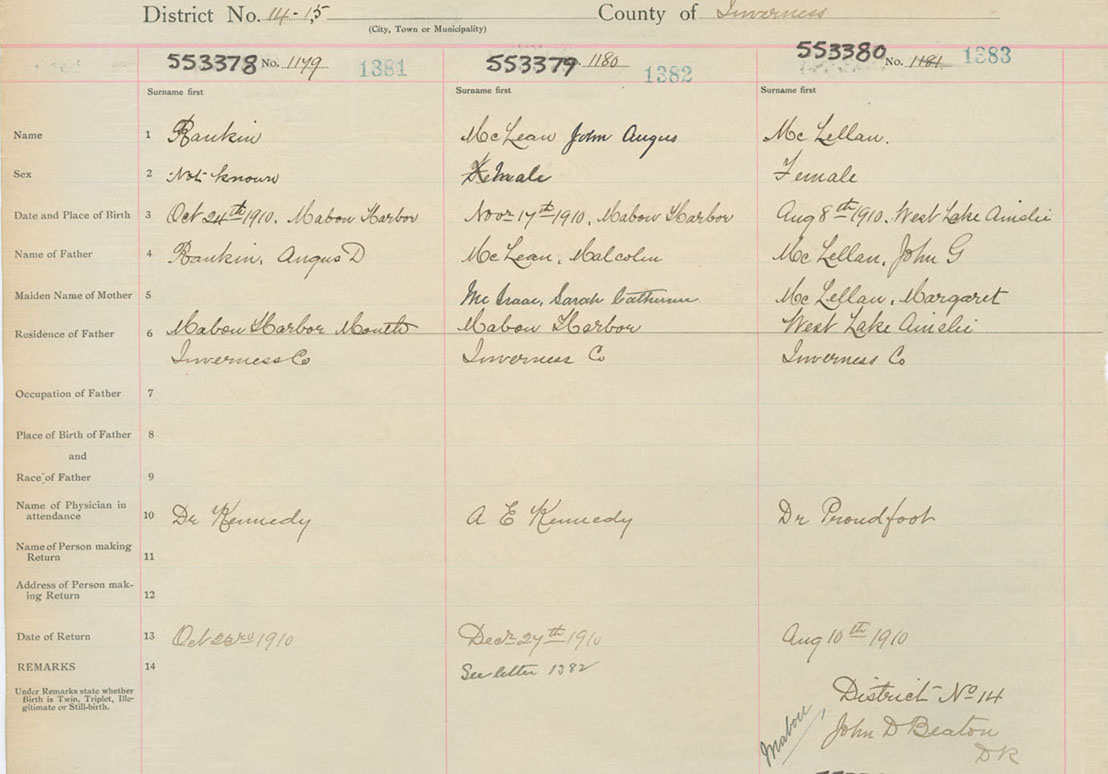 District No. 14-15 County of Inverness
(City, Town or Municipality)
553378 No. 1179 1381 553379 1180 1382 553380 No. 1181 1383
Surname first Surname first Surname first
Name 1 Rankin McLean John Angus McLellan.
Sex 2 Not known Female Female
Date and Place of Birth 3 Oct 24th 1910. Mabou Harbor Novr 17th 1910. Mabou Harbor Aug 8th 1910. West Lake Ainslie
Name of Father 4 Rankin. Angus D McLean. Malcolm McLellan. John G
Maiden Name of Mother 5 McIsaac, Sarah Catherine McLellan. Margaret
Residence of Father 6 Mabou Harbor Mouth Mabou Harbor West Lake Ainslie
Inverness Co Inverness Co Inverness Co
Occupation of Father 7
Place of Birth of Father 8
and
Race of Father 9
Name of Physician in
attendance 10 Dr Kennedy A E Kennedy Dr Proudfoot
Name of Person making
Return 11
Address of Person mak-
ing Return 12
Date of Return 13 Oct 1910 Decr 27th 1910 Aug 10th 1910
REMARKS 14 See letter 1382
Under Remarks state whether
Birth is Twin, Triplet, Ille-
gitimate or Still-birth.
District No 14
Mabou John D Beaton
DR